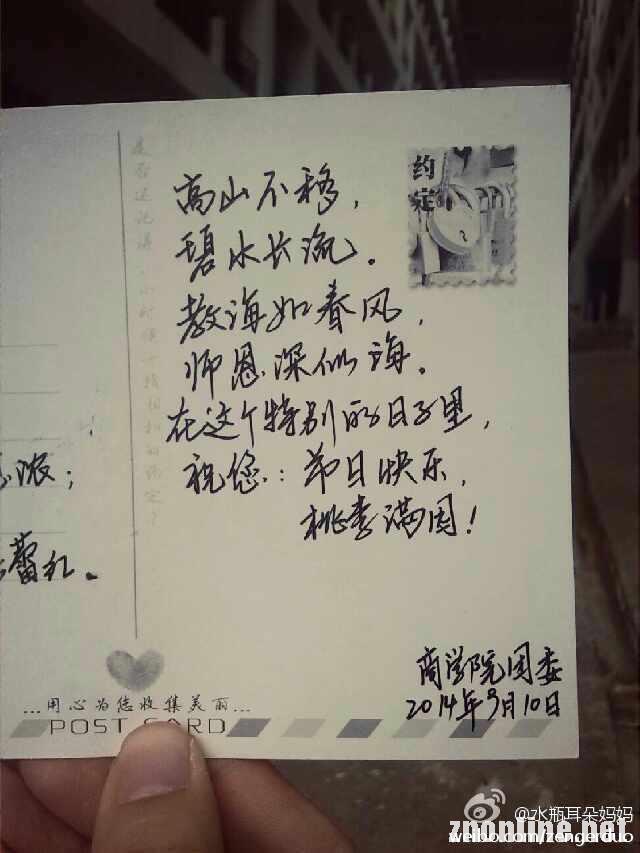 约定
高山不移，
碧水长流。
教诲如春风，
师恩深似海。
在这个特别的日子里，
祝您：节日快乐，
桃李满园！
浓；
蕾红。
是否还记得，小时候 相扣的约定？
商学院团委
2014年9月10日
...用心为您收集美丽...
POST CARD
@水瓶耳朵妈妈
znonline.net
weibo.com/zengerduo